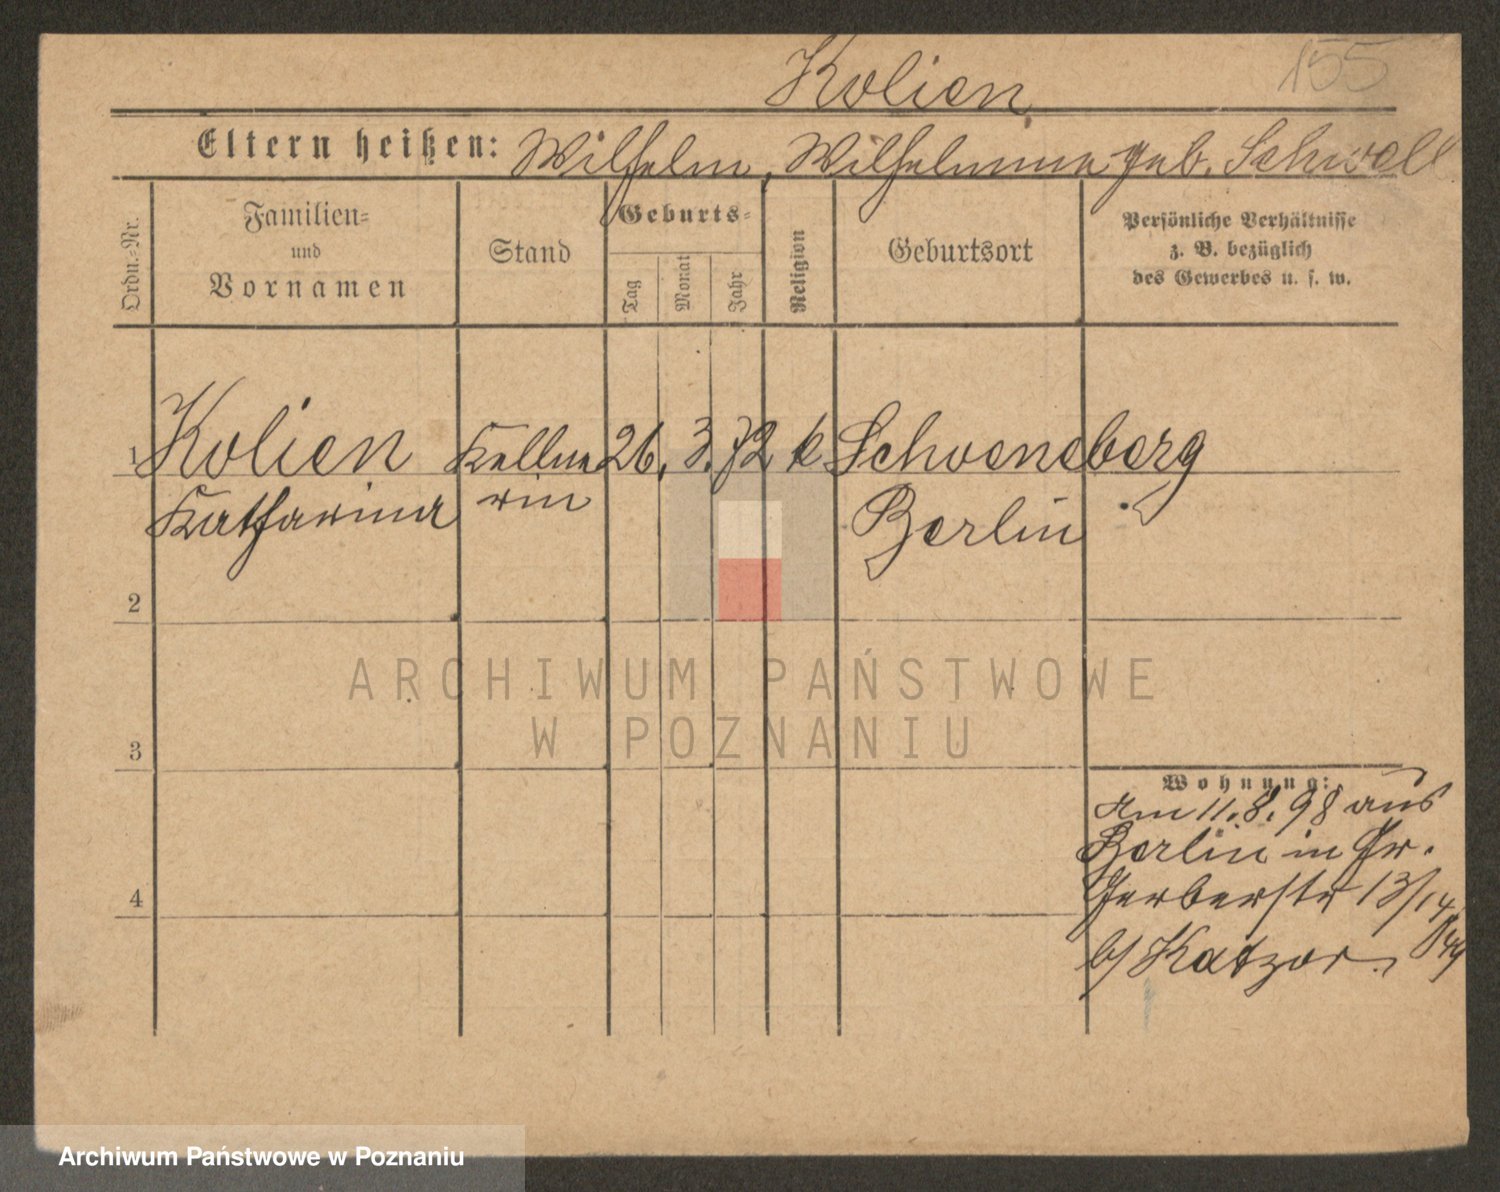 155
Kolien
Eltern heißen: Wilhelm, Wilhelmine geb. Schwell
Ordn.-Nr.
Familien-
und
Vornamen
Stand
Geburts-
Tag
Monat
Jahr
Religion
Geburtsort
Persönliche Verhältnisse
z. B. bezüglich
des Gewerbes u. s. w.
1 Kolien Kellne 26. 3. 72 k Schoeneberg
Katharina rin Berlin
2
ARCHIWUM PAŃSTWOWE
W POZNANIU
3
Wohnung:
Am 11.8.98 aus
Berlin in Gr.
Gerberstr 13/14
b/ Katzor.
4
Archiwum Państwowe w Poznaniu